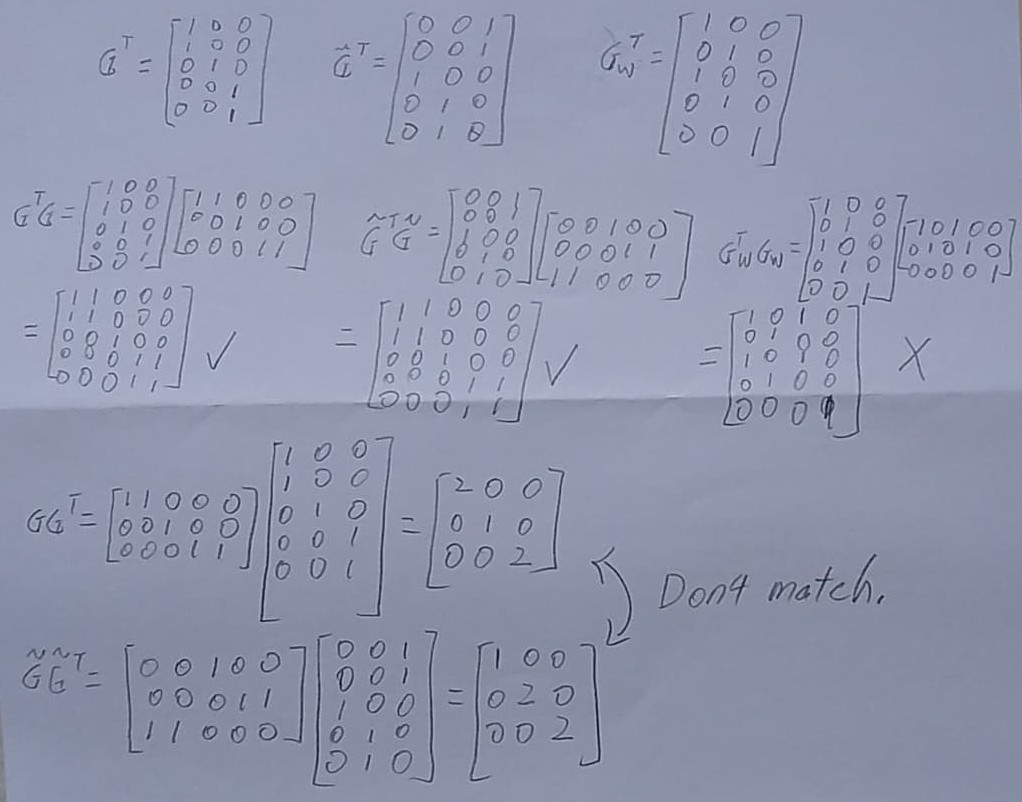 Gᵀ = [1 0 0
1 0 0
0 1 0
0 0 1
0 0 1]
G̃ᵀ = [0 0 1
0 0 1
1 0 0
0 1 0
0 1 0]
G_Wᵀ = [1 0 0
0 1 0
1 0 0
0 1 0
0 0 1]
GᵀG = [1 0 0
1 0 0
0 1 0
0 0 1
0 0 1]
[1 1 0 0 0
0 0 1 0 0
0 0 0 1 1]
= [1 1 0 0 0
1 1 0 0 0
0 0 1 0 0
0 0 0 1 1
0 0 0 1 1] ✓
G̃ᵀG̃ = [0 0 1
0 0 1
1 0 0
0 1 0
0 1 0]
[0 0 1 0 0
0 0 0 1 1
1 1 0 0 0]
= [1 1 0 0 0
1 1 0 0 0
0 0 1 0 0
0 0 0 1 1
0 0 0 1 1] ✓
G_WᵀG_W = [1 0 0
0 1 0
1 0 0
0 1 0
0 0 1]
[1 0 1 0 0
0 1 0 1 0
0 0 0 0 1]
= [1 0 1 0
0 1 0 0
1 0 0
0 1 0 0
0 0 0 1] X
GGᵀ = [1 1 0 0 0
0 0 1 0 0
0 0 0 1 1]
[1 0 0
1 0 0
0 1 0
0 0 1
0 0 1]
= [2 0 0
0 1 0
0 0 2]
Don't match.
G̃G̃ᵀ = [0 0 1 0 0
0 0 0 1 1
1 1 0 0 0]
[0 0 1
0 0 1
1 0 0
0 1 0
0 1 0]
= [1 0 0
0 2 0
0 0 2]